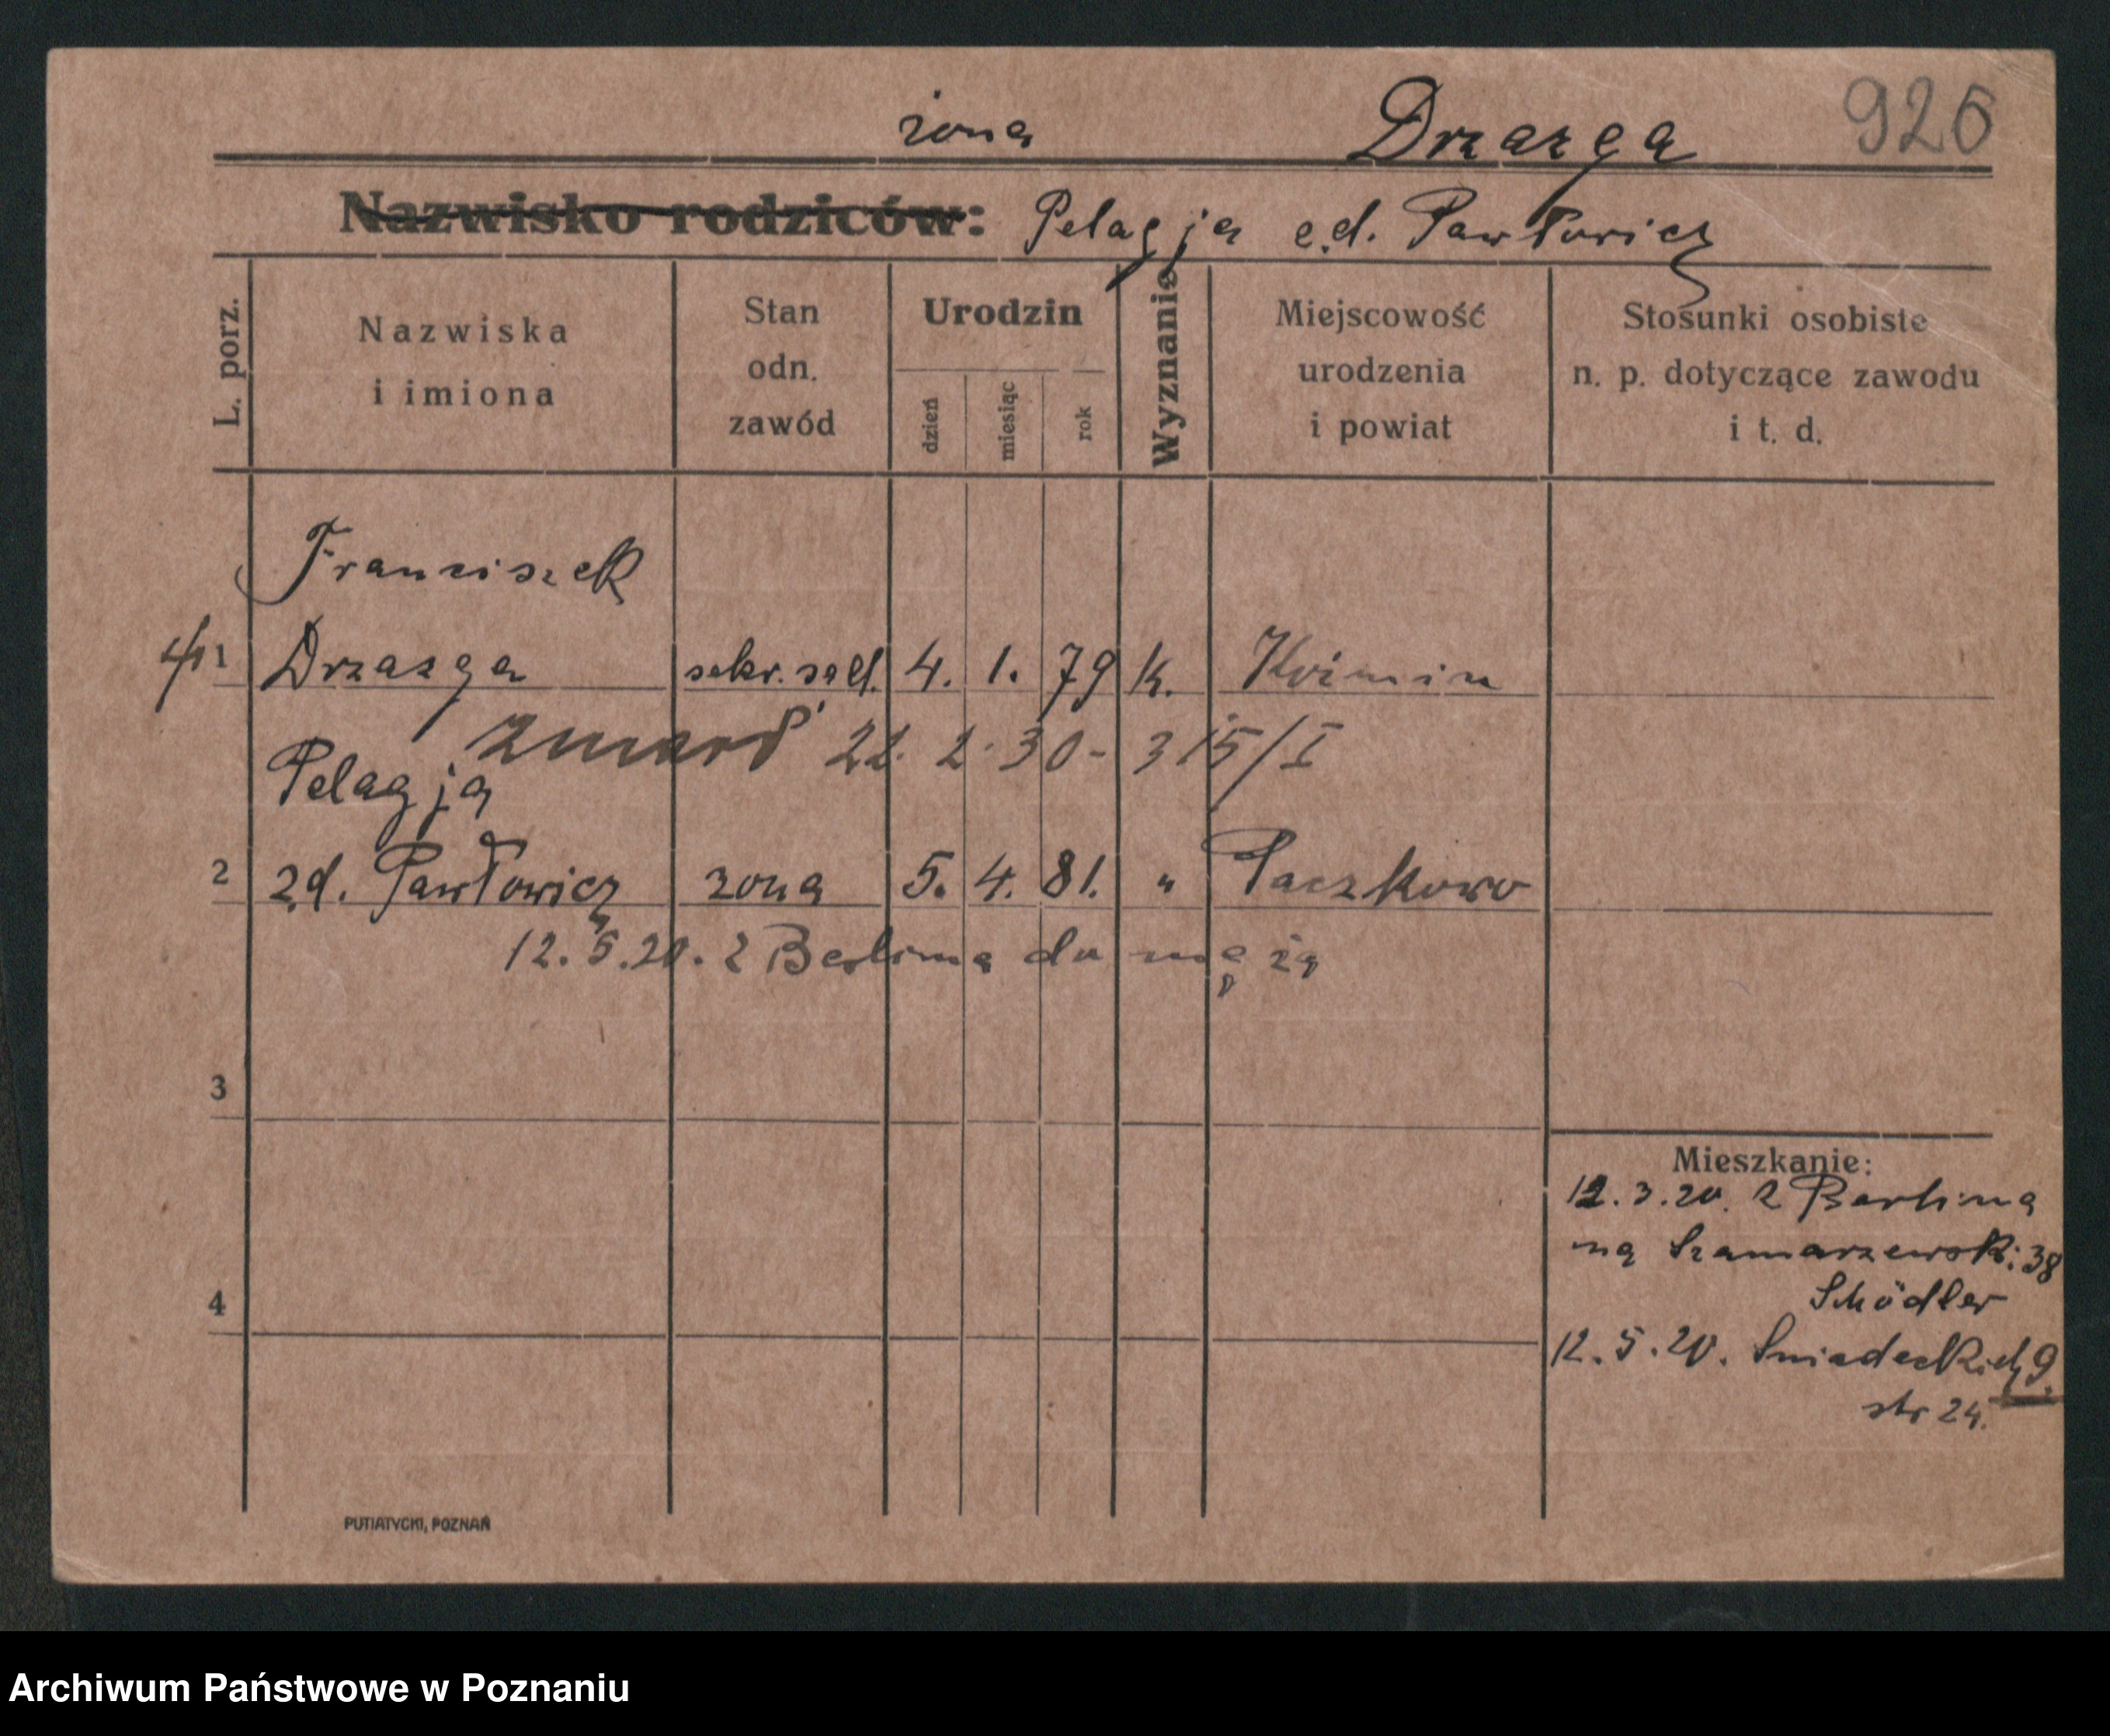 żona Drzazga 926
Nazwisko rodziców: Pelagja z.d. Pawłowicz
L. porz.
Nazwiska
i imiona
Stan
odn.
zawód
Urodzin
dzień
miesiąc
rok
Wyznanie
Miejscowość
urodzenia
i powiat
Stosunki osobiste
n. p. dotyczące zawodu
i t. d.
Franciszek
1 Drzazga sekr. sąd. 4. 1. 79 k. Koźmin
zmarł 22. 2. 30 - 315/I
Pelagja
2 z.d. Pawłowicz żona 5. 4. 81. " Paczkowo
12.5.20. z Berlina do męża
3
4
Mieszkanie:
12.3.20. z Berlina
na Szamarzewski: 38
Schödler
12.5.20. Sniadeckich 9.
str 24.
PUTIATYCKI, POZNAŃ
Archiwum Państwowe w Poznaniu